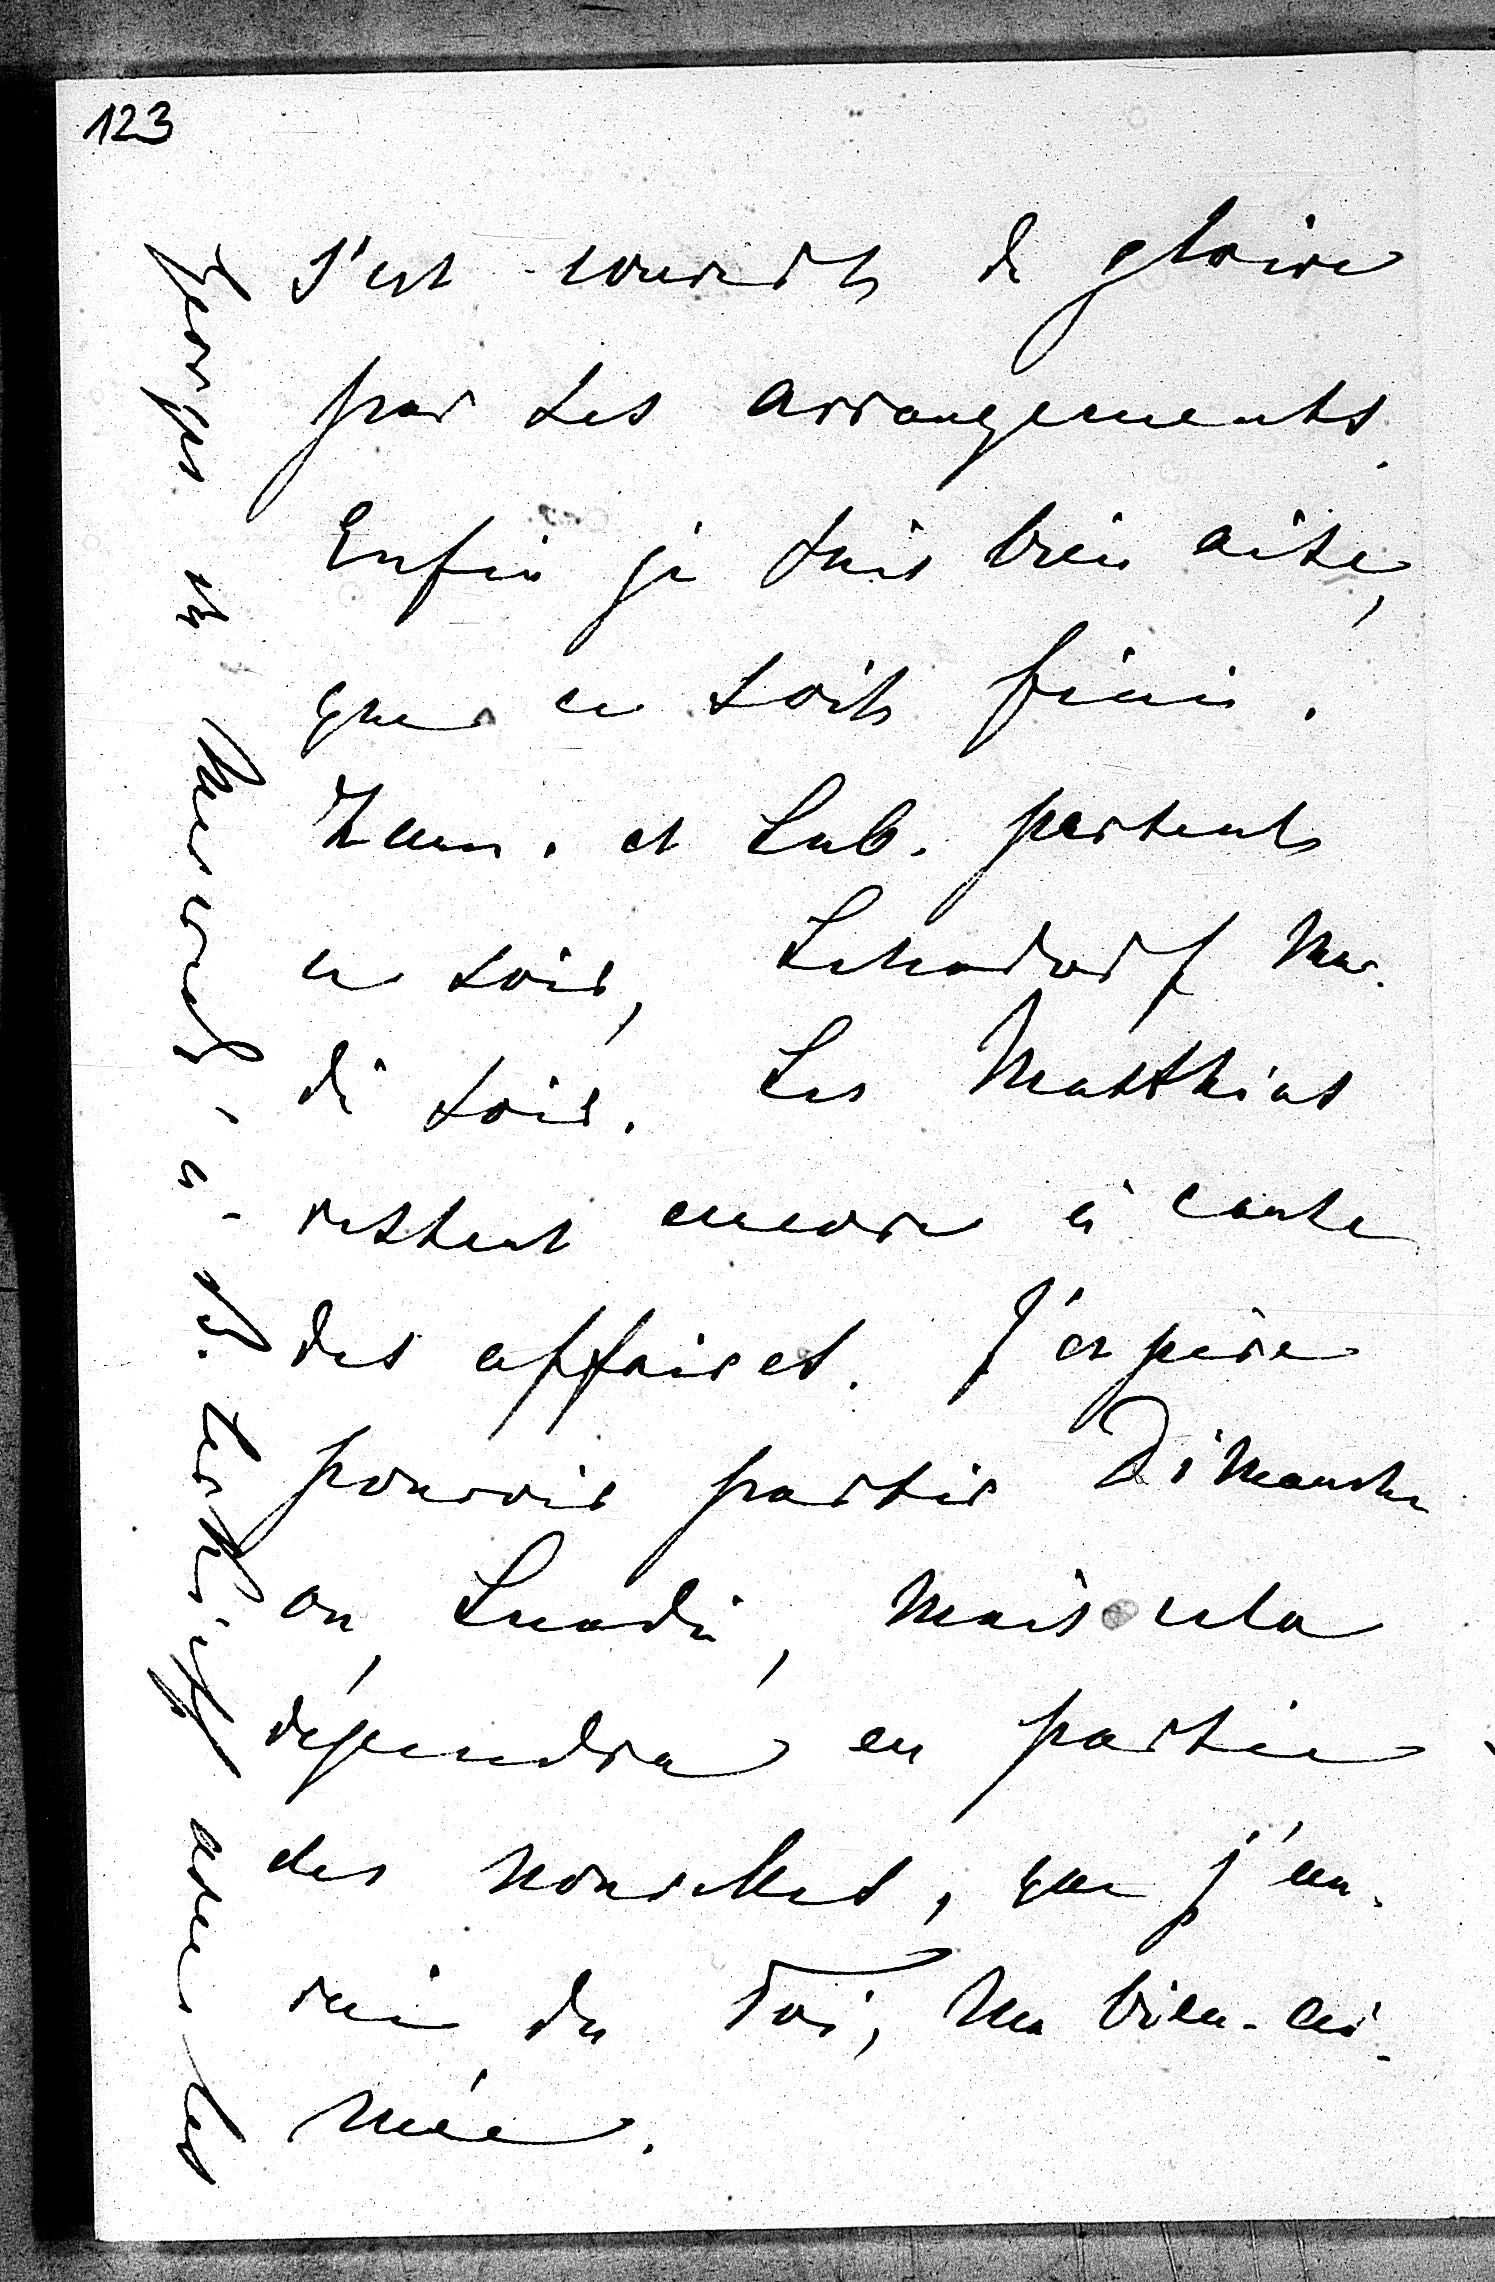 123
s'est couvert de gloire
par ses arrangements.
Enfin je suis bien aise,
que ce soit fini.
et Lub. partent
ce soir, Lehndorf Mar-
di soir. Les Matthias
restent encore à cause
des affaires. J'espère
pouvoir partir Dimanche
ou Lundi, mais cela
dépendra en partie
des nouvelles, que j'au-
rai de Toi, ma bien-ai-
mée.
Georges et
avec les